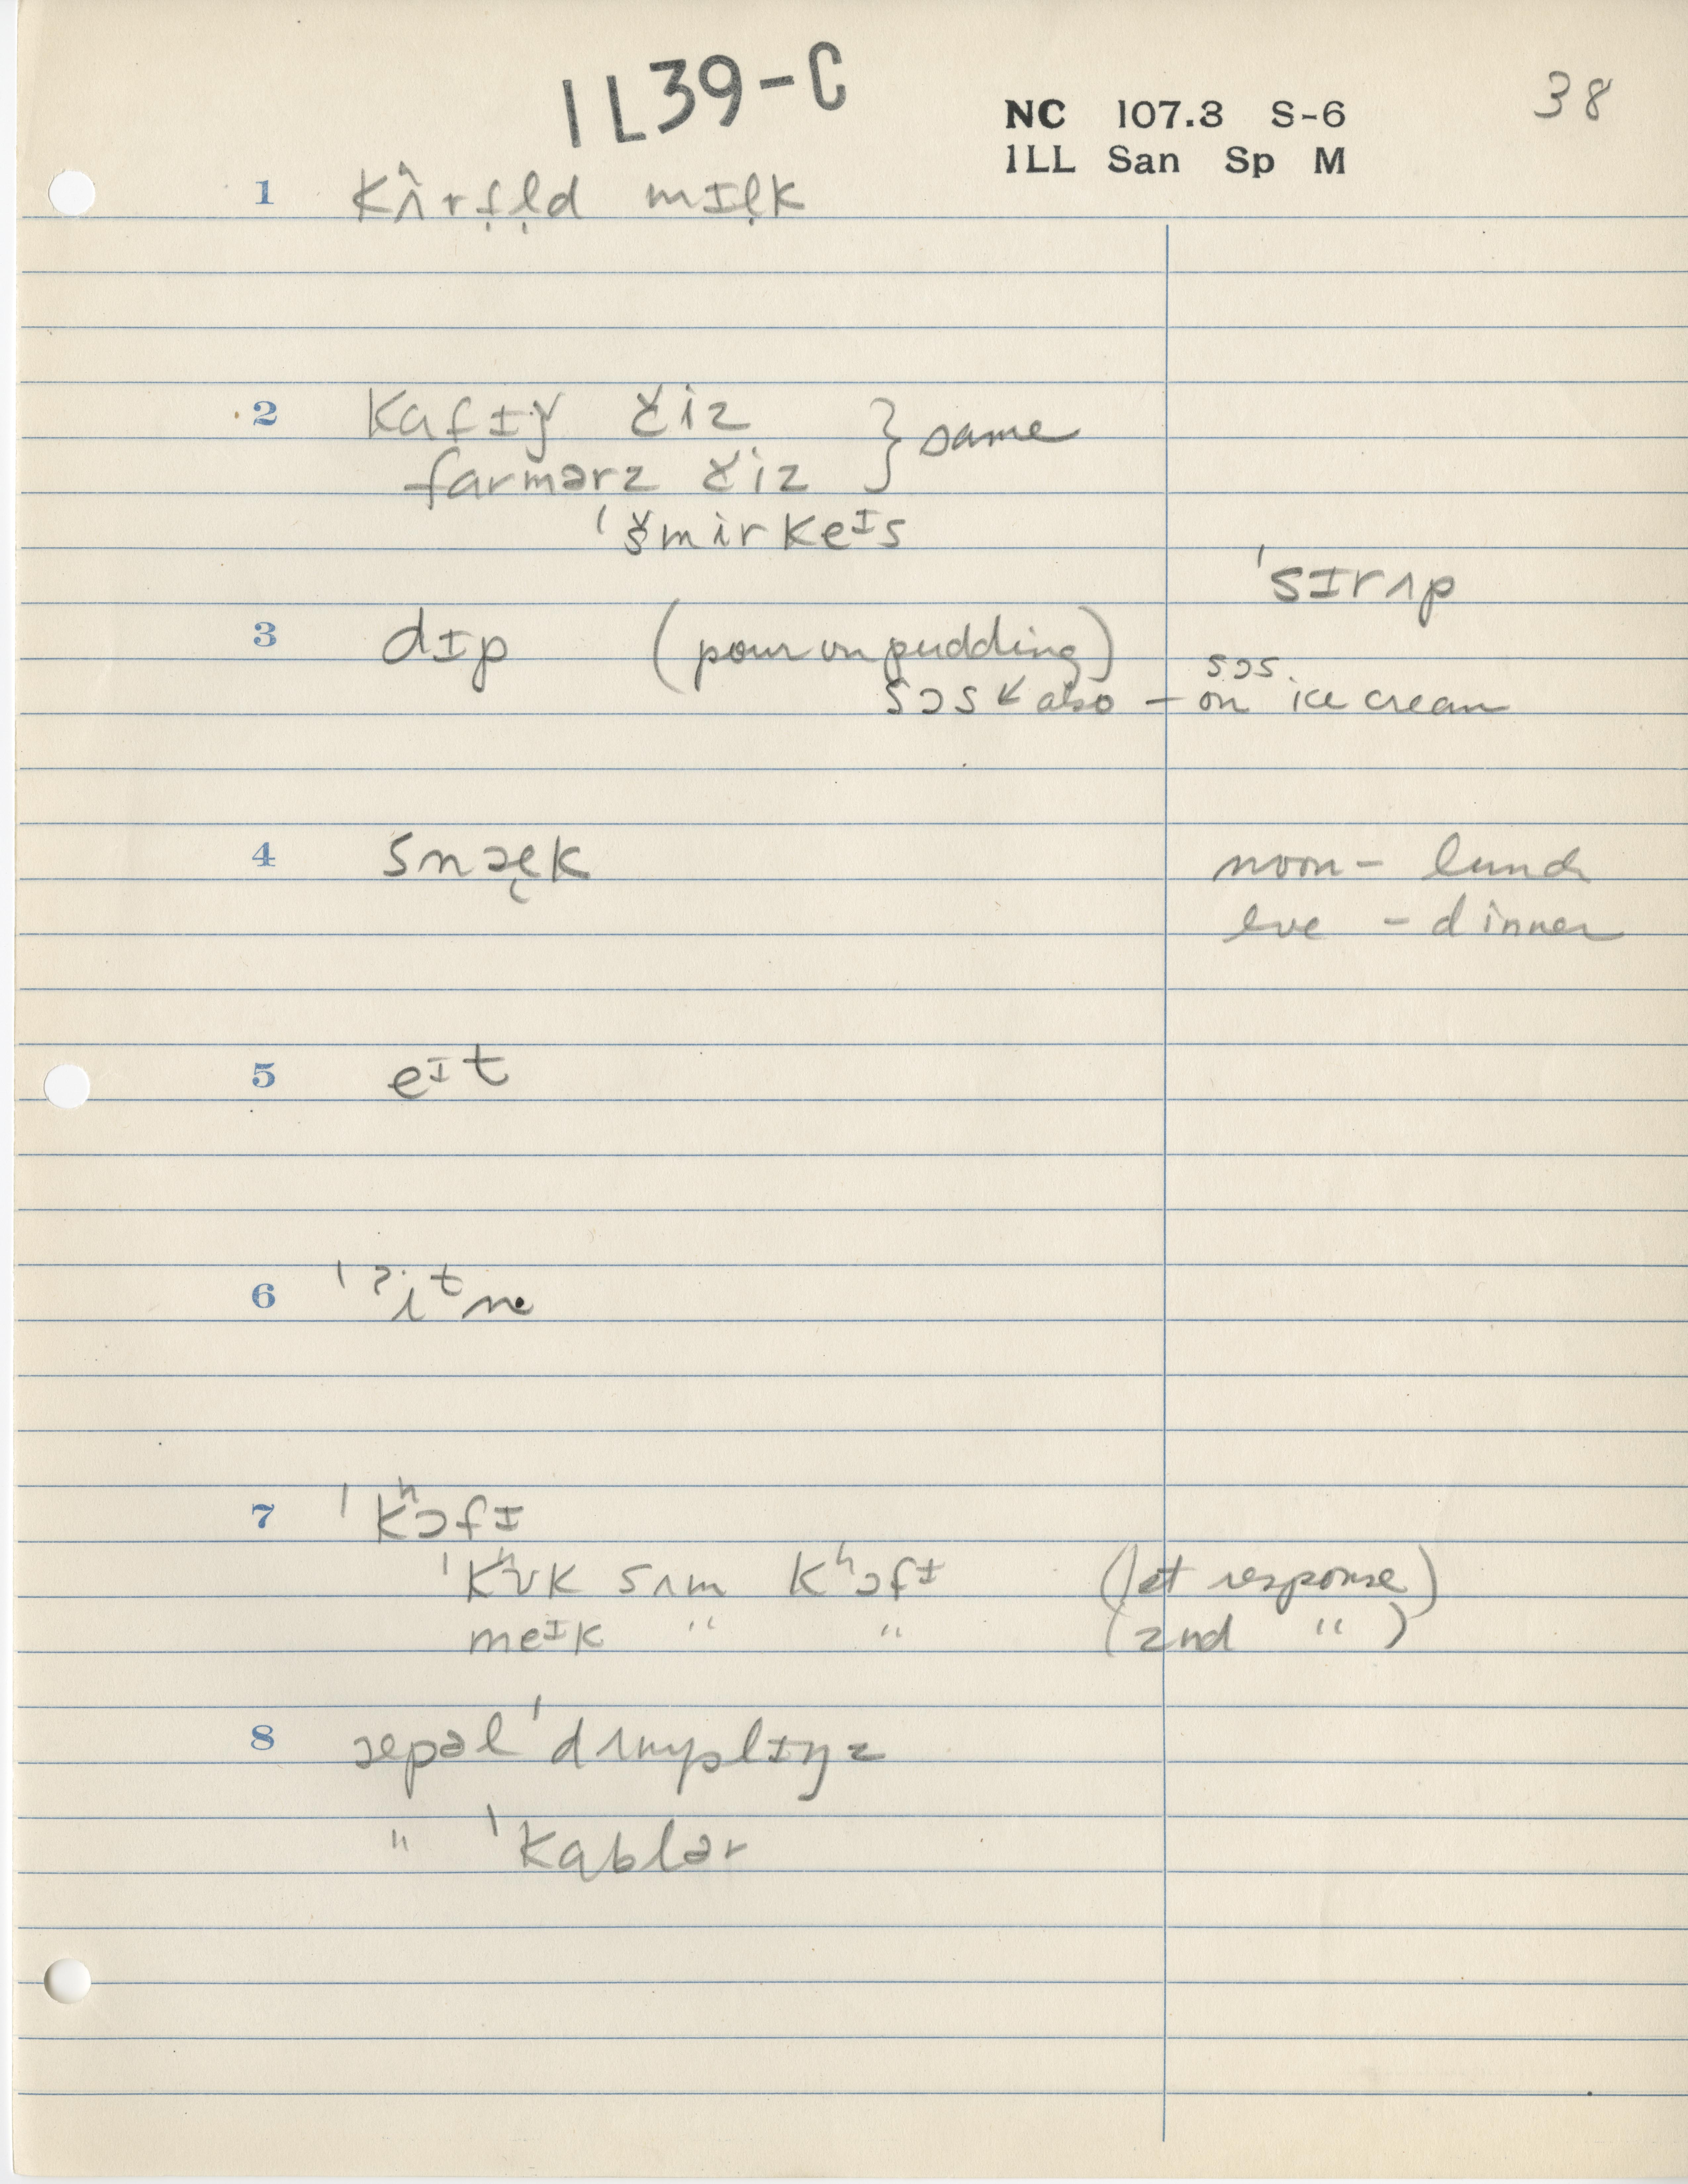 IL39-C
NC 107.3 S-6
ILL San Sp M
38
1 kʌ̂rdḷd mɪḷk
2 kafɪǰ čiz
farmərz čiz } same
ˈšmirkeᴵs
ˈsɪrʌp
3 dɪp (pour on pudding)
sɔs
sɔs ↙ also – on ice cream
4 snæ̨k noon – lunch
eve – dinner
5 eᴵt
6 ˈˀiᵗn̩
7 ˈkʰɔfɪ
ˈkʰʊk sʌm kʰɔfɪ (1st response)
meᴵk " " (2nd " )
8 æpəl ˈdʌmplɪŋz
" ˈkablər